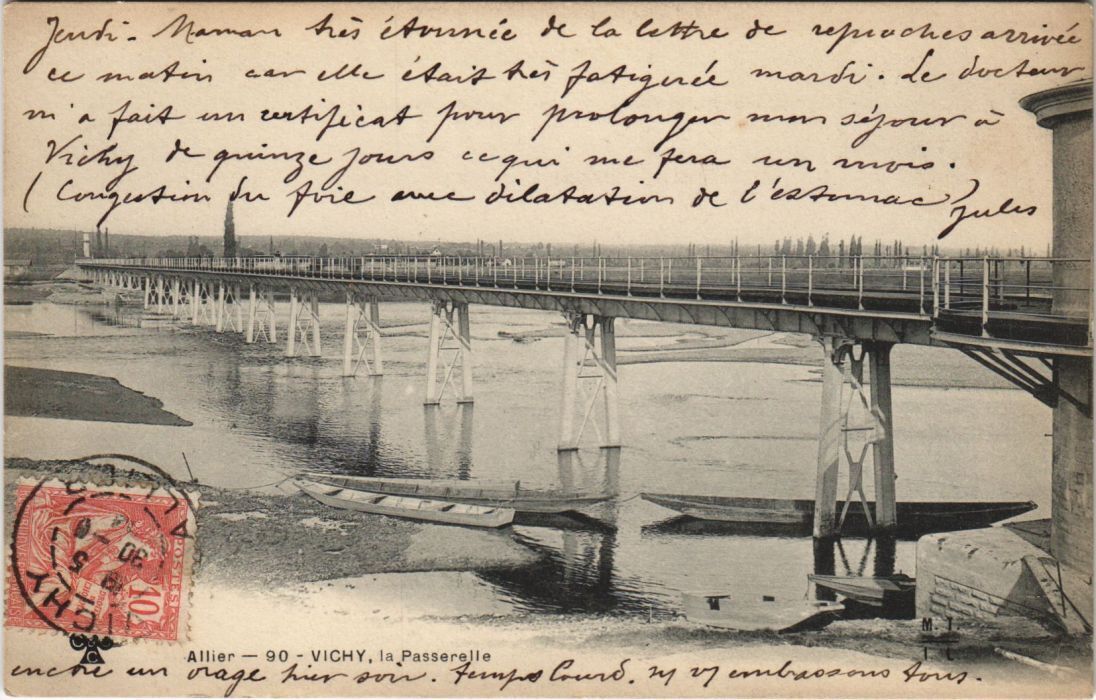 Jeudi - Maman très étonnée de la lettre de reproches arrivée
ce matin car elle était très fatiguée mardi. Le docteur
m'a fait un certificat pour prolonger mon séjour à
Vichy de quinze jours ce qui me fera un mois.
(Congestion du foie avec dilatation de l'estomac) Jules
POSTES
10
VICHY
ALLIER
30
5
Allier — 90 - VICHY, la Passerelle
M.T.
I L
encore un orage hier soir. temps lourd. embrassons tous.